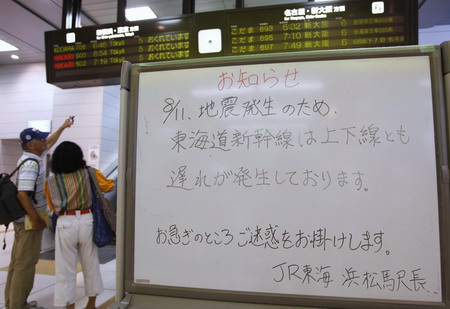 新横浜・東京 方面
for Shin-yokohama, Tokyo
名古屋・新大阪 方面
for Nagoya, Shin-Osaka
6:46 Tokyo おくれています
6:52 Tokyo おくれています
7:19 Tokyo おくれています
こだま 693 6:32 新大阪
こだま 695 7:10 新大阪
こだま 697 新大阪
お知らせ
8/11、地震発生のため、
東海道新幹線は上下線とも
遅れが発生しております。
お急ぎのところご迷惑をお掛けします。
JR東海 浜松駅長